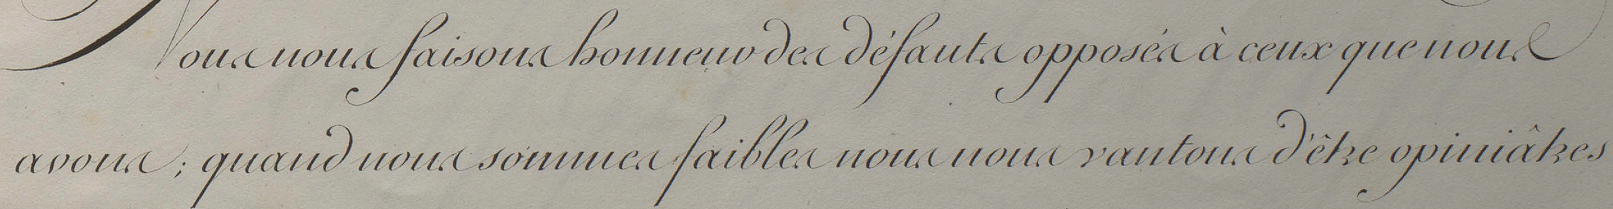 Nous nous faisons honneur des défauts opposés à ceux que nous
avons ; quand nous sommes faibles nous nous vantons d'être opiniâtres